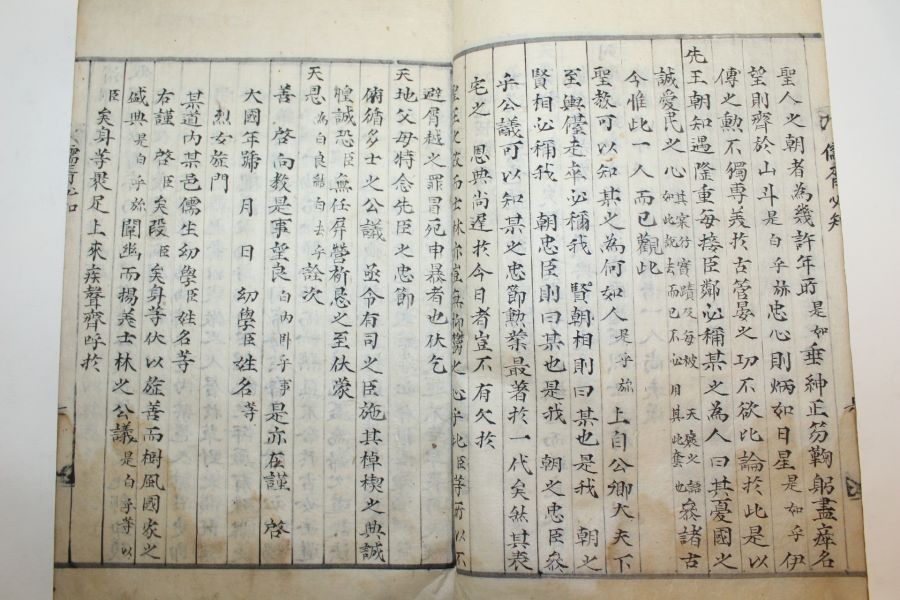 儒胥必知
聖人之朝者為幾許年所 是如 垂紳正笏鞠躬盡瘁名
望則齊於山斗 是白乎旀 忠心則炳如日星 是如乎 伊
傳之勲不獨專美於古管晏之功不欲比論於此是以
先王朝知遇隆重每接臣鄰必稱某之為人曰其憂國之
誠愛民之心 其家行實蹟及每被 天褒之語
如此說去而已不必用其此套也 叅諸古
今惟此一人而已觀此
聖教可以知某之為何如人 是乎旀 上自公卿大夫下
至輿儓走卒必稱我 賢朝相則曰某也是我 朝之
賢相必稱我 朝忠臣則曰某也是我 朝之忠臣叅
乎公議可以知某之忠節勲業最著於一代矣然其表
宅之 恩典尚遲於今日者豈不有欠於
聖主之政而士林亦豈無抑鬱之心乎此臣等所以不
避屑越之罪冒死申暴者也伏乞
天地父母特念先臣之忠節
俯循多士之公議 亟令有司之臣施其棹楔之典誠
惶誠恐臣無任屏營祈懇之至伏蒙
天恩 為白良結白去乎 詮次
善 啓向教是事望良 白內卧乎事是亦在謹 啓
大國年號 月 日 幼學臣姓名等
烈女旌門
某道內某邑儒生幼學臣姓名等
右謹 啓臣矣段臣矣身等伏以旌善而樹風國家之
盛典 是白乎旀 闡幽而揚義士林之公議 是白乎等以
臣矣身等裹足上來疾聲齊呼於